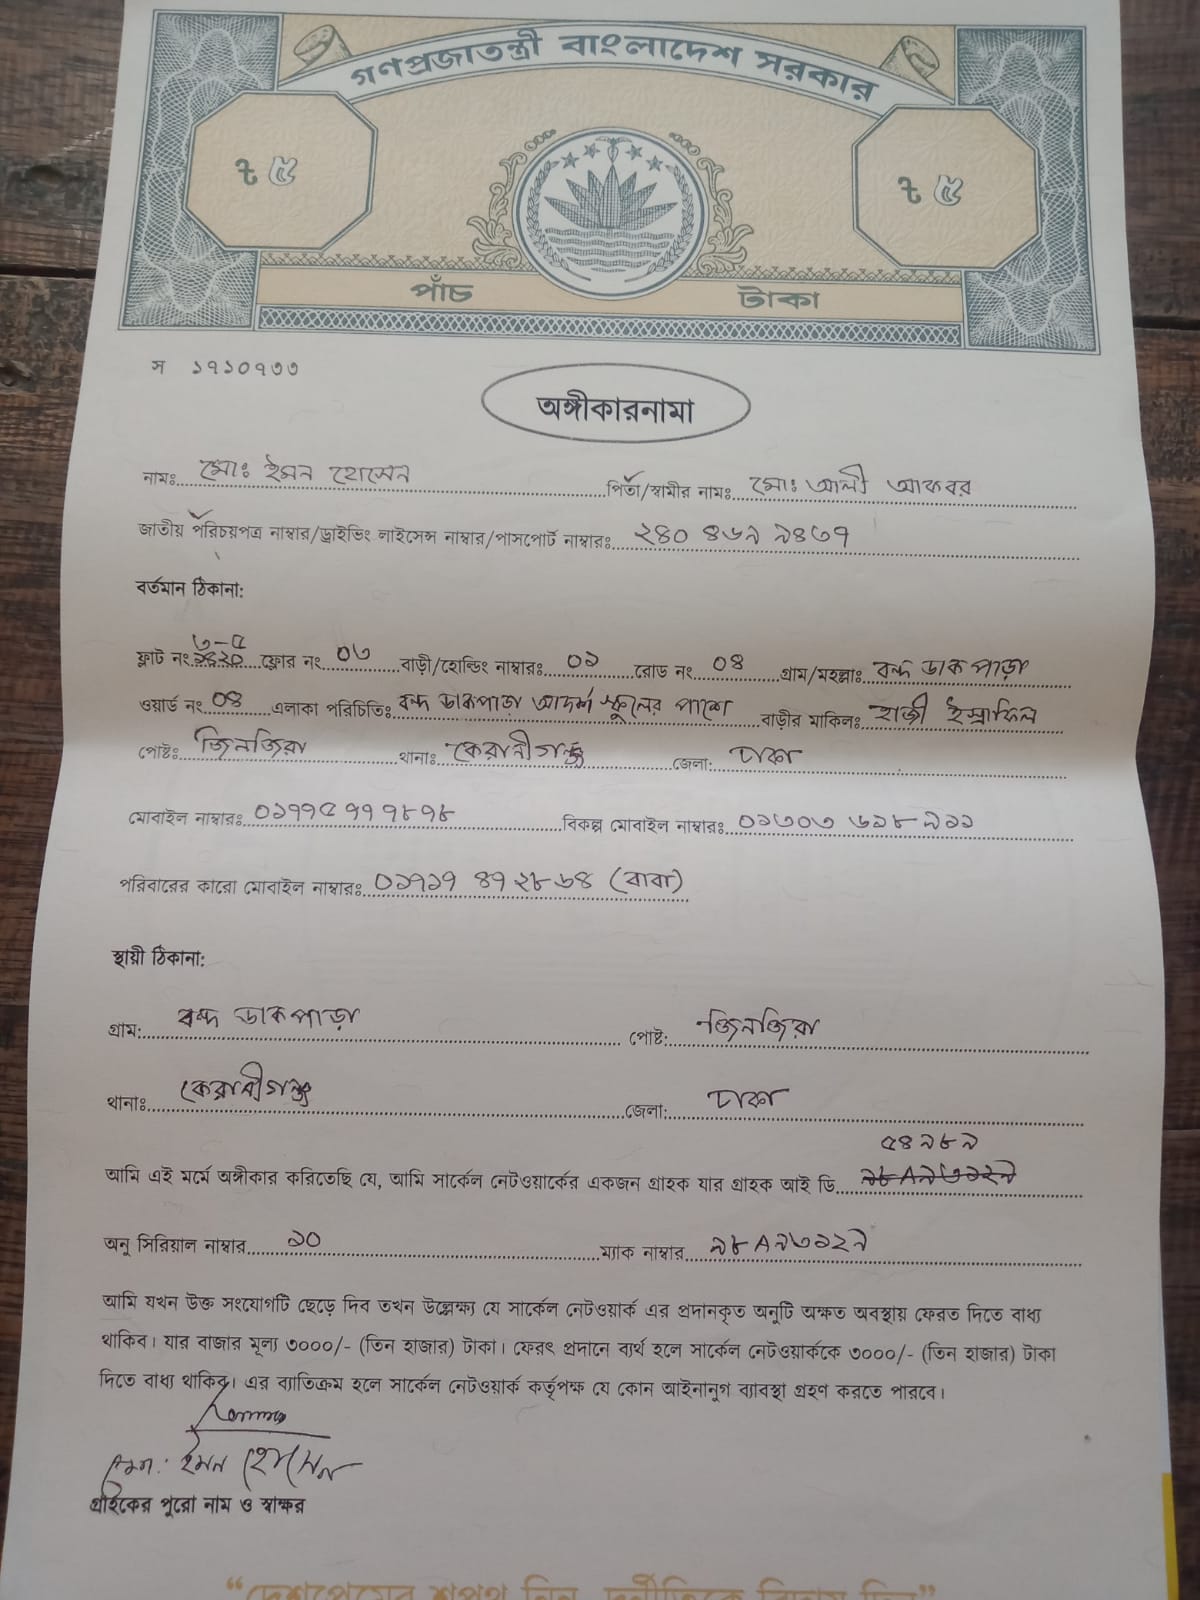 গণপ্রজাতন্ত্রী বাংলাদেশ সরকার
৳ ৫ ৳ ৫
পাঁচ টাকা
স ১৭১০৭৩৩
অঙ্গীকারনামা
নামঃ মোঃ ইমন হোসেন পিতা/স্বামীর নামঃ মোঃ আলী আকবর
জাতীয় পরিচয়পত্র নাম্বার/ড্রাইভিং লাইসেন্স নাম্বার/পাসপোর্ট নাম্বারঃ ২৪০ ৪৬৯ ৯৪৩৭
বর্তমান ঠিকানা:
৩-৫
ফ্লাট নং ফ্লোর নং ০৩ বাড়ী/হোল্ডিং নাম্বারঃ ০১ রোড নং ০৪ গ্রাম/মহল্লাঃ বন্দ ডাকপাড়া
ওয়ার্ড নং ০৪ এলাকা পরিচিতিঃ বন্দ ডাকপাড়া আদর্শ স্কুলের পাশে বাড়ীর মালিকঃ হাজী ইস্রাফিল
পোষ্টঃ জিনজিরা থানাঃ কেরানীগঞ্জ জেলা: ঢাকা
মোবাইল নাম্বারঃ ০১৭৭৫৭৭৭৮৭৮ বিকল্প মোবাইল নাম্বারঃ ০১৩০৩ ৬১৮ ৯১১
পরিবারের কারো মোবাইল নাম্বারঃ ০১৭১৭ ৪৭২৮৬৪ (বাবা)
স্থায়ী ঠিকানা:
গ্রাম: বন্দ ডাকপাড়া পোষ্ট: জিনজিরা
থানাঃ কেরানীগঞ্জ জেলা: ঢাকা
৫৪৯৮৯
আমি এই মর্মে অঙ্গীকার করিতেছি যে, আমি সার্কেল নেটওয়ার্কের একজন গ্রাহক যার গ্রাহক আই ডি ৯৮A৯৩১২৭
অনু সিরিয়াল নাম্বার ১০ ম্যাক নাম্বার ৯৮A৯৩১২৭
আমি যখন উক্ত সংযোগটি ছেড়ে দিব তখন উল্লেক্ষ্য যে সার্কেল নেটওয়ার্ক এর প্রদানকৃত অনুটি অক্ষত অবস্থায় ফেরত দিতে বাধ্য
থাকিব। যার বাজার মূল্য ৩০০০/- (তিন হাজার) টাকা। ফেরৎ প্রদানে ব্যর্থ হলে সার্কেল নেটওয়ার্ককে ৩০০০/- (তিন হাজার) টাকা
দিতে বাধ্য থাকিব। এর ব্যাতিক্রম হলে সার্কেল নেটওয়ার্ক কর্তৃপক্ষ যে কোন আইনানুগ ব্যাবস্থা গ্রহণ করতে পারবে।
ইমন হোসেন
গ্রাহকের পুরো নাম ও স্বাক্ষর
“দেশপ্রেমের শপথ নিন, দুর্নীতিকে বিদায় দিন”